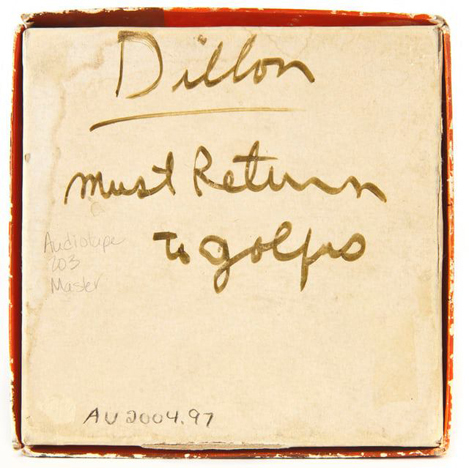 Dillon
Must Return
To golfis
Audiotape
203
Master
AU 2004.97